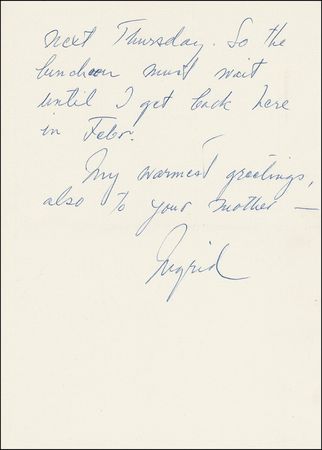 next Thursday. So the
luncheon must wait
until I get back here
in Febr.
My warmest greetings,
also to your mother —
Ingrid